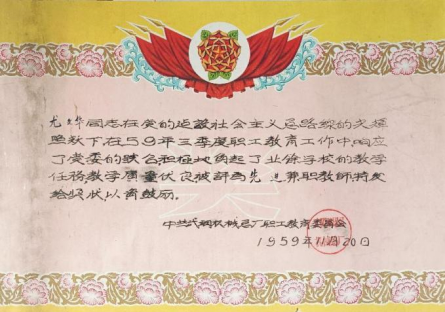 同志在党的建設社会主义总路綫的光輝
照耀下在59年三季度职工教育工作中响应
了党委的号召积极地負起了业余学校的教学
任務教学質量优良被評為先进兼职教師特发
給奖状以資鼓励。
机械总厂职工教育委員会
1959年11月20日